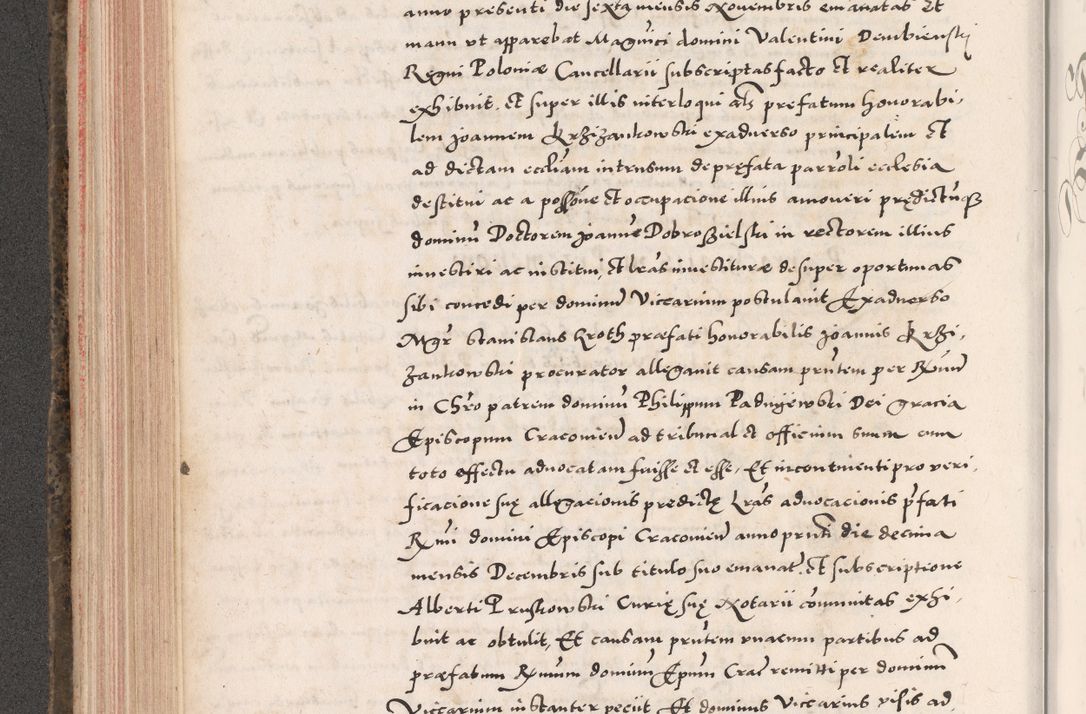 anno presenti die sexta mensis Novembris emanatas et
manu ut apparebat Magnifici domini Valentini Dembienski
Regni Poloniæ Cancellarii subscriptas facto et realiter
exhibuit, et super illis interloqui als prefatum honorabi-
lem Joannem Krzizankowski exadverso principalem et
ad dictam eccliam intrusum de pręfata parroli ecclesia
destitui ac a possone et occupacione illius amoveri prędictumq
dominu Doctorem Joanne Dobroszielski in rectorem illius
investiri ac institui, et lras investituræ desuper oportunas
sibi concedi per dominum Viccarium postulavit Exadverso
Mgr Stanislaus Kroth præfati honorabilis Joannis Krzi-
zankowski procurator allegavit causam prntem per Rmum
in Chro patrem dominu Philippum Padniewski Dei gracia
Episcopum Cracovien ad tribunal et officium suum cum
toto effectu advocatam fuisse et esse, Et incontinenti pro veri-
ficacione suę allegacionis predictę lras advocacionis pfati
Rmi domini Episcopi Cracovien anno prnti die decima
mensis Decembris sub titulo suo emanat. et subscriptione
Alberti Pruskowski Curię suę Notarii comunitas exhi-
buit ac obtulit, Et causam prntem unacum partibus ad
præfatum Rmum dominum Epum Crac remitti per dominum
Viccarium instanter peciit Et dominus Viccarius visis ad